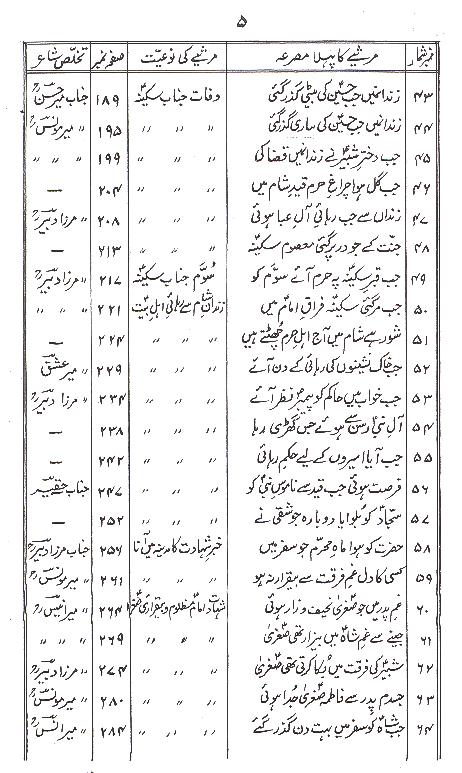 ۵
نمبر شمار مرثیے کا پہلا مصرعہ مرثیے کی نوعیت صفحہ نمبر تخلص شاعر
۴۳ زنداں میں جب حسینؑ کی بیٹی گذر گئی وفات جناب سکینہؑ ۱۸۹ جناب میر حسنؔ
۴۴ زنداں میں جب حسینؑ کی پیاری گذر گئی 〃 〃 〃 ۱۹۵ 〃 میر مونسؔ
۴۵ جب دختر شبیرؑ نے زنداں میں قضا کی 〃 〃 〃 ۱۹۹ 〃 〃 〃
۴۶ جب گل ہوا چراغِ حرم قیدِ شام میں 〃 〃 〃 ۲۰۴ —
۴۷ زنداں سے جب رہائیِ آلِ عبا ہوئی 〃 〃 〃 ۲۰۸ 〃 مرزا دبیرؔ
۴۸ جنت کے جو در پر گئی معصوم سکینہؑ 〃 〃 〃 ۲۱۳ —
۴۹ جب قبرِ سکینہؑ پہ حرم آئے سوّم کو سوّم جناب سکینہؑ ۲۱۷ 〃 مرزا دبیرؔ
۵۰ جب مر گئی سکینہؑ فراقِ امامؑ میں زندانِ شام سے رہائی اہل بیتؑ ۲۲۱ 〃 〃 〃
۵۱ شور ہے شام میں آج اہلِ حرم چھٹتے ہیں 〃 〃 〃 ۲۲۴ —
۵۲ جب خاک نشینوں کی رہائی کے دن آئے 〃 〃 〃 ۲۲۹ 〃 میر عشقؔ
۵۳ جب خواب میں حاکم کو پیمبرؐ نظر آئے 〃 〃 〃 ۲۳۴ 〃 مرزا دبیرؔ
۵۴ آلِ نبیؐ رسن سے ہوئے جس گھڑی رہا 〃 〃 〃 ۲۳۸ —
۵۵ جب آیا اسیروں کے لیے حکمِ رہائی 〃 〃 〃 ۲۴۲ —
۵۶ فرصت ہوئی جب قید سے ناموسِ نبیؐ کو 〃 〃 〃 ۲۴۷ جناب حقیرؔ
۵۷ سجادؑ کو بلوایا دوبارہ جو شقی نے 〃 〃 〃 ۲۵۲ —
۵۸ حضرت کو ہوا ماہِ محرم جو سفر میں خبرِ شہادت کا مدینہ میں آنا ۲۵۶ جناب مرزا دبیرؔ
۵۹ کسی کا دل غمِ فرقت سے بیقرار نہ ہو 〃 〃 〃 ۲۶۱ 〃 میر مونسؔ
۶۰ غمِ پدر میں جو صغریٰؑ نحیف و زار ہوئی شہادت امام مظلوم و بیقراری صغریٰؑ ۲۶۴ 〃 میر انیسؔ
۶۱ جینے سے غمِ شاہؑ میں بیزار تھی صغریٰؑ 〃 〃 〃 ۲۶۹ 〃 〃 〃
۶۲ شبیرؑ کی فرقت میں بُکا کرتی تھی صغریٰؑ 〃 〃 〃 ۲۷۴ 〃 مرزا دبیرؔ
۶۳ جسدم پدر سے فاطمہ صغریٰؑ جدا ہوئی 〃 〃 〃 ۲۸۰ 〃 میر مونسؔ
۶۴ جب شاہؑ کو سفر میں بہت دن گذر گئے 〃 〃 〃 ۲۸۴ 〃 میر انسؔ